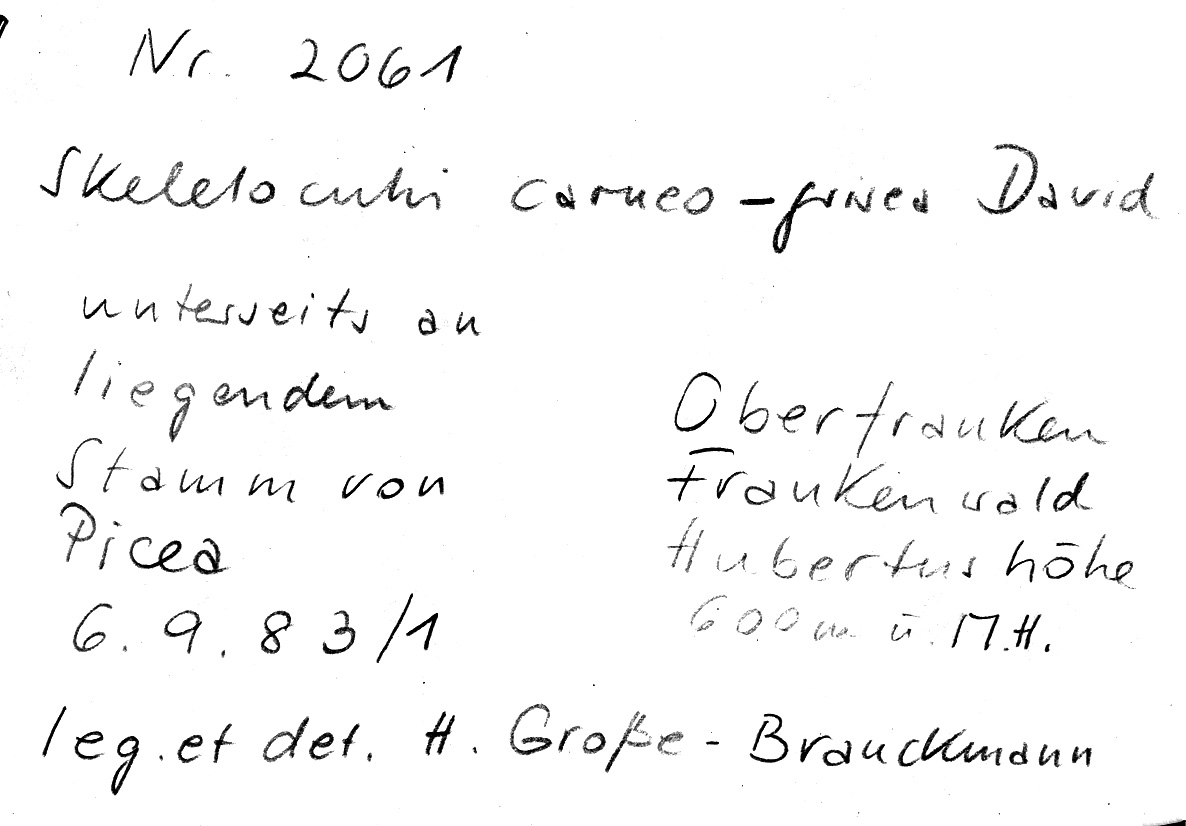 Nr. 2061
Skeletocutis carneo-grisea David
unterseits an
liegendem
Stamm von
Picea
6.9.83/1
Oberfranken
Frankenwald
Hubertushöhe
600 m ü. M.H.
leg. et det. H. Große-Brauckmann